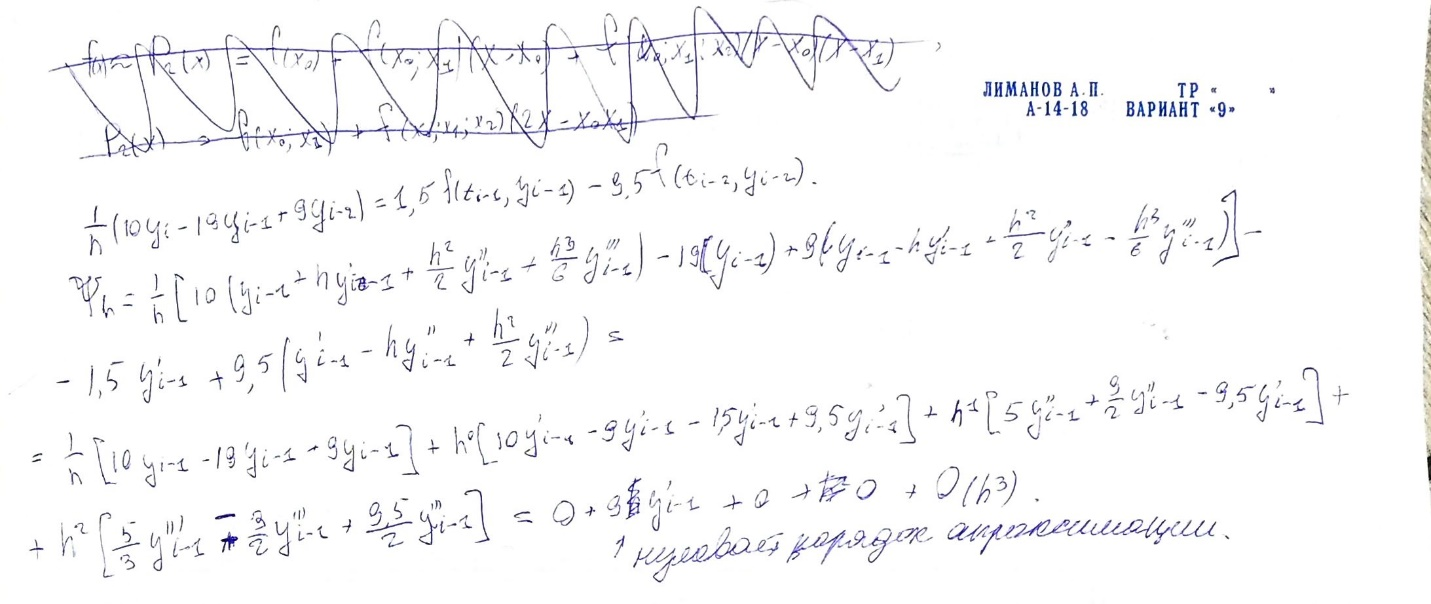 f(x) ≈ P₂(x) = f(x₀) + f(x₀; x₁)(x - x₀) + f(x₀; x₁; x₂)(x - x₀)(x - x₁),
ЛИМАНОВ А.П. ТР « »
А-14-18 ВАРИАНТ «9»
P₂(x) = f(x₀; x₁) + f(x₀; x₁; x₂)(2x - x₀x₁)
1/h (10yᵢ - 19yᵢ₋₁ + 9yᵢ₋₂) = 1,5 f(tᵢ₋₁, yᵢ₋₁) - 9,5 f(tᵢ₋₂, yᵢ₋₂).
Ψₕ = 1/h [10 (yᵢ₋₁ + hy'ᵢ₋₁ + h²/2 y''ᵢ₋₁ + h³/6 y'''ᵢ₋₁) - 19(yᵢ₋₁) + 9(yᵢ₋₁ - hy'ᵢ₋₁ + h²/2 y''ᵢ₋₁ - h³/6 y'''ᵢ₋₁)] -
- 1,5 y'ᵢ₋₁ + 9,5 (y'ᵢ₋₁ - hy''ᵢ₋₁ + h²/2 y'''ᵢ₋₁) =
= 1/h [10yᵢ₋₁ - 19yᵢ₋₁ + 9yᵢ₋₁] + h⁰[10y'ᵢ₋₁ - 9y'ᵢ₋₁ - 1,5y'ᵢ₋₁ + 9,5y'ᵢ₋₁] + h¹[5y''ᵢ₋₁ + 9/2 y''ᵢ₋₁ - 9,5y'ᵢ₋₁] +
+ h² [5/3 y'''ᵢ₋₁ - 3/2 y'''ᵢ₋₁ + 9,5/2 y'''ᵢ₋₁] = 0 + 9y'ᵢ₋₁ + 0 + 0 + O(h³).
↑ нулевой порядок аппроксимации.